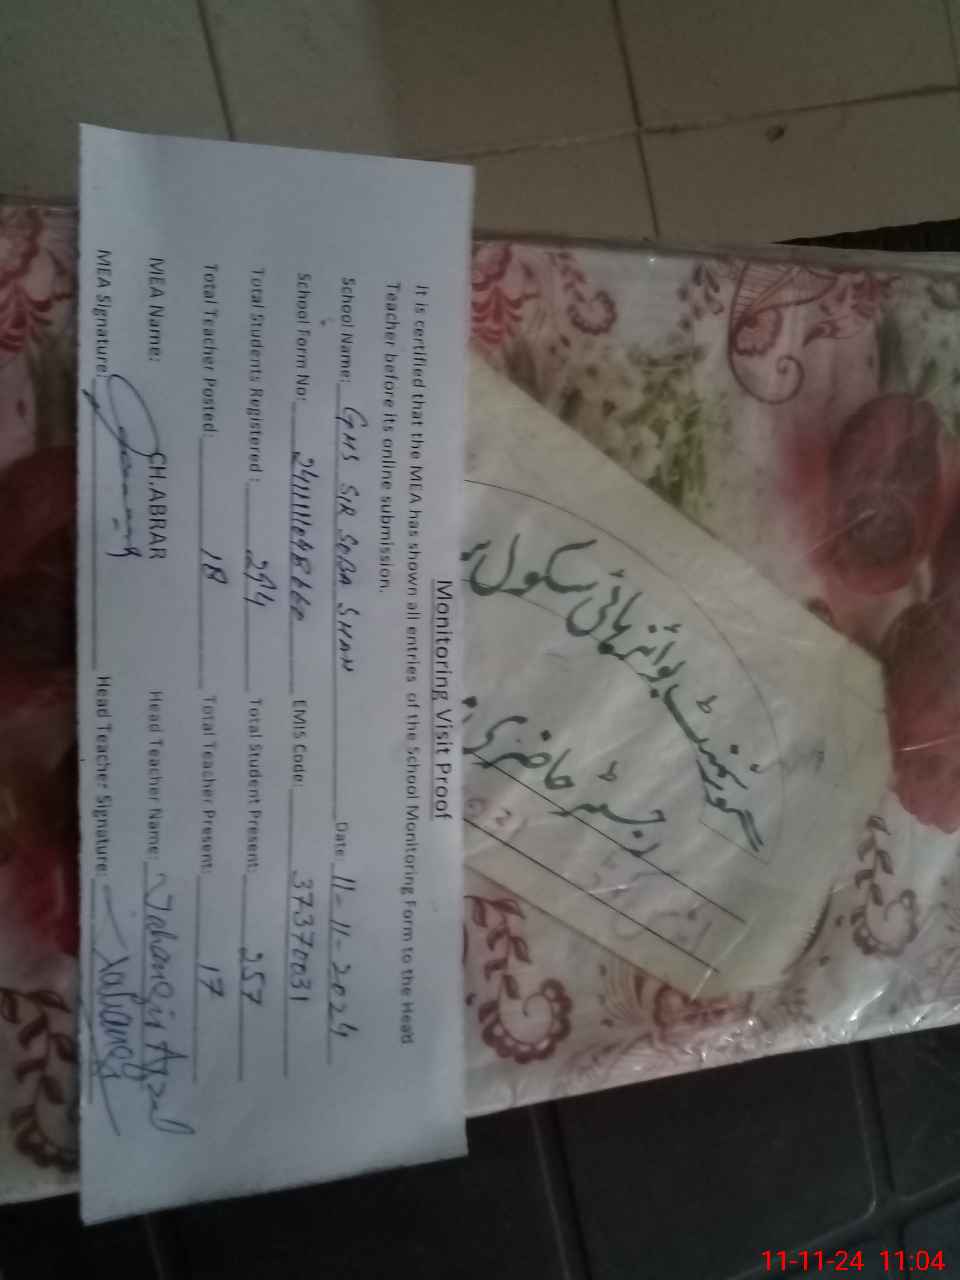 Monitoring Visit Proof
It is certified that the MEA has shown all entries of the School Monitoring Form to the Head
Teacher before its online submission.
School Name: GHS SIR SOBA SHAH Date: 11-11-2024
School Form No: EMIS Code: 37370031
Total Students Registered: 294 Total Student Present: 257
Total Teacher Posted: 18 Total Teacher Present: 17
MEA Name: CH.ABRAR Head Teacher Name: Jahangir Afzal
MEA Signature: Head Teacher Signature: Jahangir
گورنمنٹ بوائز ہائی سکول
رجسٹر حاضری
11-11-24 11:04